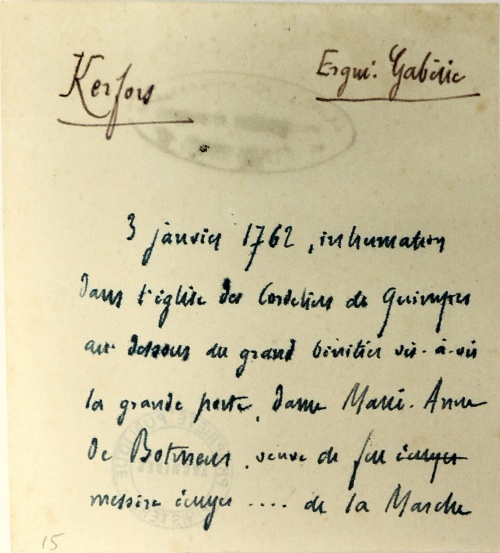 Kerfors
Ergué. Gabéric
3 janvier 1762, inhumation
dans l'église des Cordeliers de Quimper
au dessous du grand bénitier vis-à-vis
la grande porte, dame Marie-Anne
de Botmeur, veuve de feu écuyer
messire écuyer .... de la Marche
15